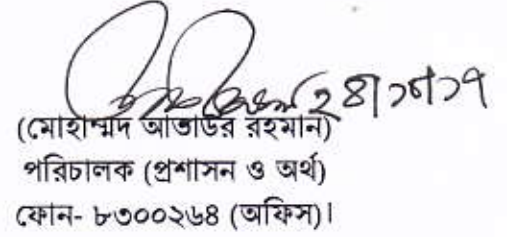 (মোহাম্মদ আতাউর রহমান)
পরিচালক (প্রশাসন ও অর্থ)
ফোন- ৮৩০০২৬৪ (অফিস)।